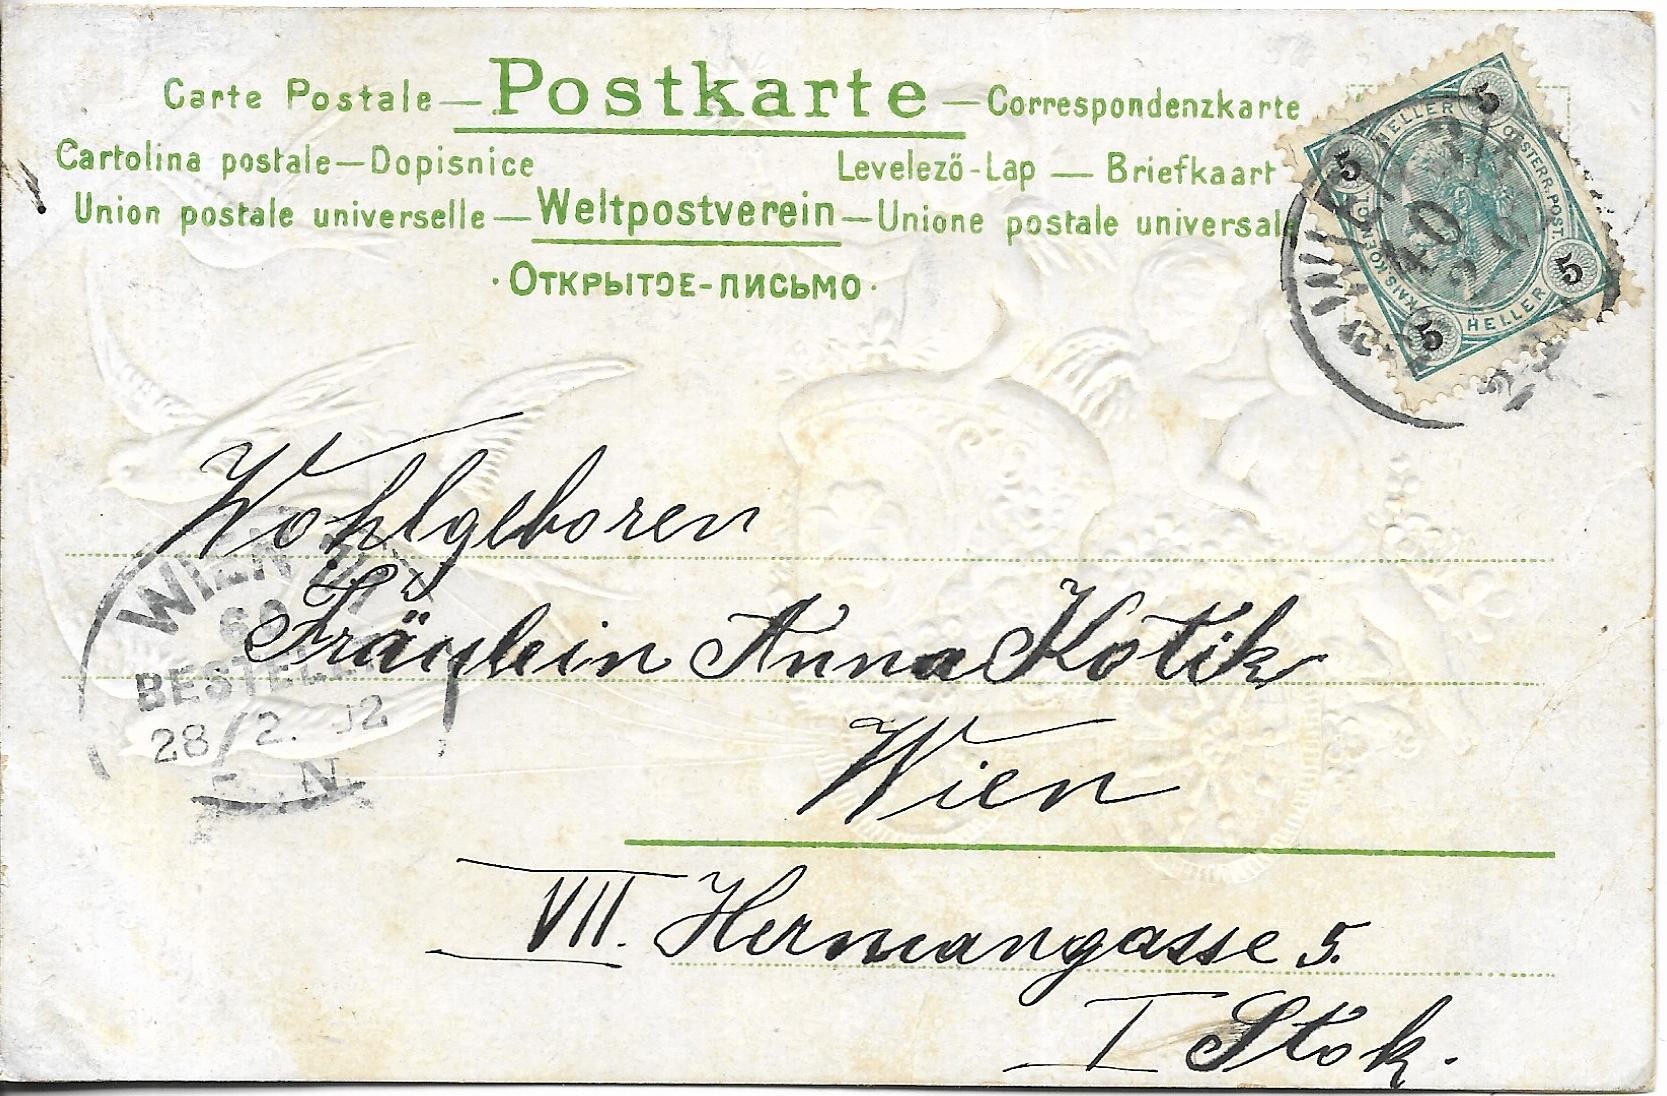 Carte Postale — Postkarte — Correspondenzkarte
Cartolina postale — Dopisnice Levelező-Lap — Briefkaart
Union postale universelle — Weltpostverein — Unione postale universal
· Открытое-письмо ·
5 HELLER 5
OESTERR. POST
5 HELLER 5
Wohlgeboren
Fräulein Anna Kotik
Wien
VII. Hermangasse 5.
I Stök.
WIEN
BESTELL
28/2. 02
N.